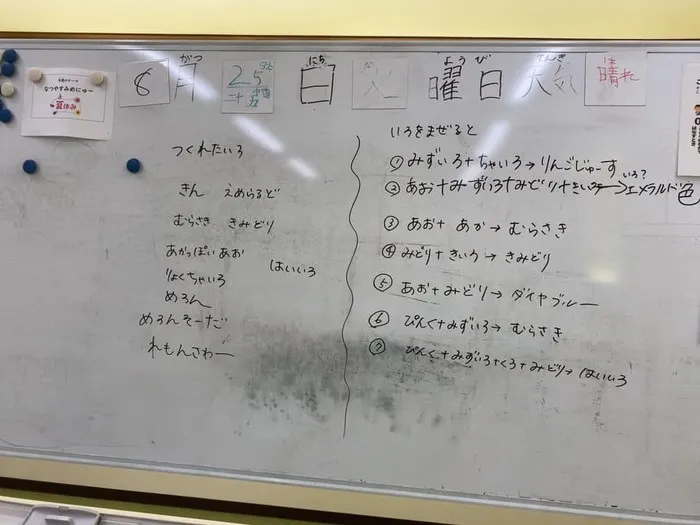 がつ にち ようび てんき は
8 月 25 日 曜日 天気 晴れ
なつやすみめにゅー
夏休み
つくれたいろ
きん えめらるど
むらさき きみどり
あかっぽいあお
はいいろ
りょくちゃいろ
めろん
めろんそーだ
れもんさわー
いろをまぜると
① みずいろ+ちゃいろ→りんごじゅーす
いろ?
② あお+みずいろ+みどり+きいろ→エメラルド色
③ あお+あか→むらさき
④ みどり+きいろ→きみどり
⑤ あお+みどり→ダイヤブルー
⑥ ぴんく+みずいろ→むらさき
⑦ ぴんく+みずいろ+くろ+みどり→はいいろ